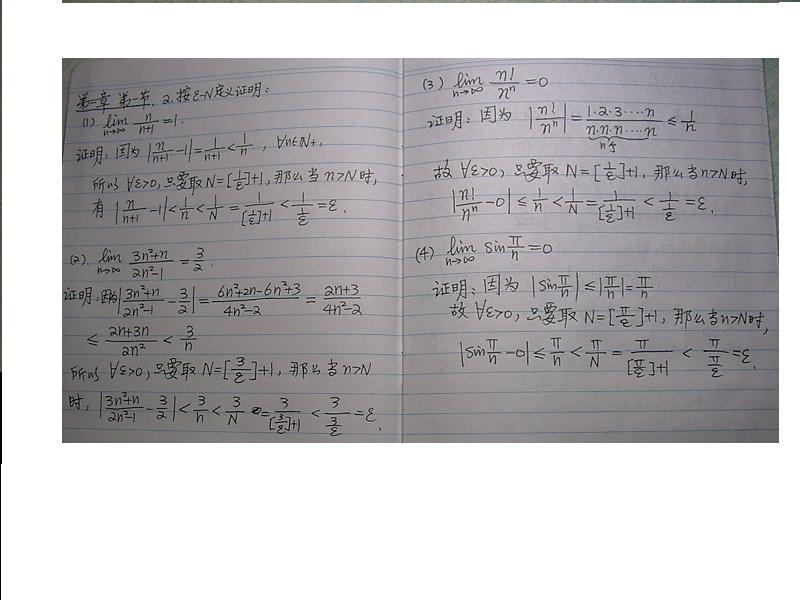 第一章 第一节. 2. 按ε-N定义证明:
(1) lim n→∞ n/(n+1) = 1.
证明: 因为 |n/(n+1) - 1| = 1/(n+1) < 1/n , ∀n∈N+,
所以 ∀ε>0, 只要取 N=[1/ε]+1, 那么当 n>N 时,
有 |n/(n+1) - 1| < 1/n < 1/N = 1/([1/ε]+1) < 1/(1/ε) = ε.
(2). lim n→∞ (3n²+n)/(2n²-1) = 3/2.
证明: 因为 |(3n²+n)/(2n²-1) - 3/2| = (6n²+2n-6n²+3)/(4n²-2) = (2n+3)/(4n²-2)
≤ (2n+3n)/(2n²) < 3/n
所以 ∀ε>0, 只要取 N=[3/ε]+1, 那么当 n>N
时, |(3n²+n)/(2n²-1) - 3/2| < 3/n < 3/N = 3/([3/ε]+1) < 3/(3/ε) = ε.
(3) lim n→∞ n!/nⁿ = 0
证明: 因为 |n!/nⁿ| = (1·2·3·…·n)/(n·n·n·…·n) ≤ 1/n
n个
故 ∀ε>0, 只要取 N=[1/ε]+1, 那么当 n>N 时,
|n!/nⁿ - 0| ≤ 1/n < 1/N = 1/([1/ε]+1) < 1/(1/ε) = ε.
(4) lim n→∞ sin π/n = 0
证明: 因为 |sin π/n| ≤ |π/n| = π/n
故 ∀ε>0, 只要取 N=[π/ε]+1, 那么当 n>N 时,
|sin π/n - 0| ≤ π/n < π/N = π/([π/ε]+1) < π/(π/ε) = ε.